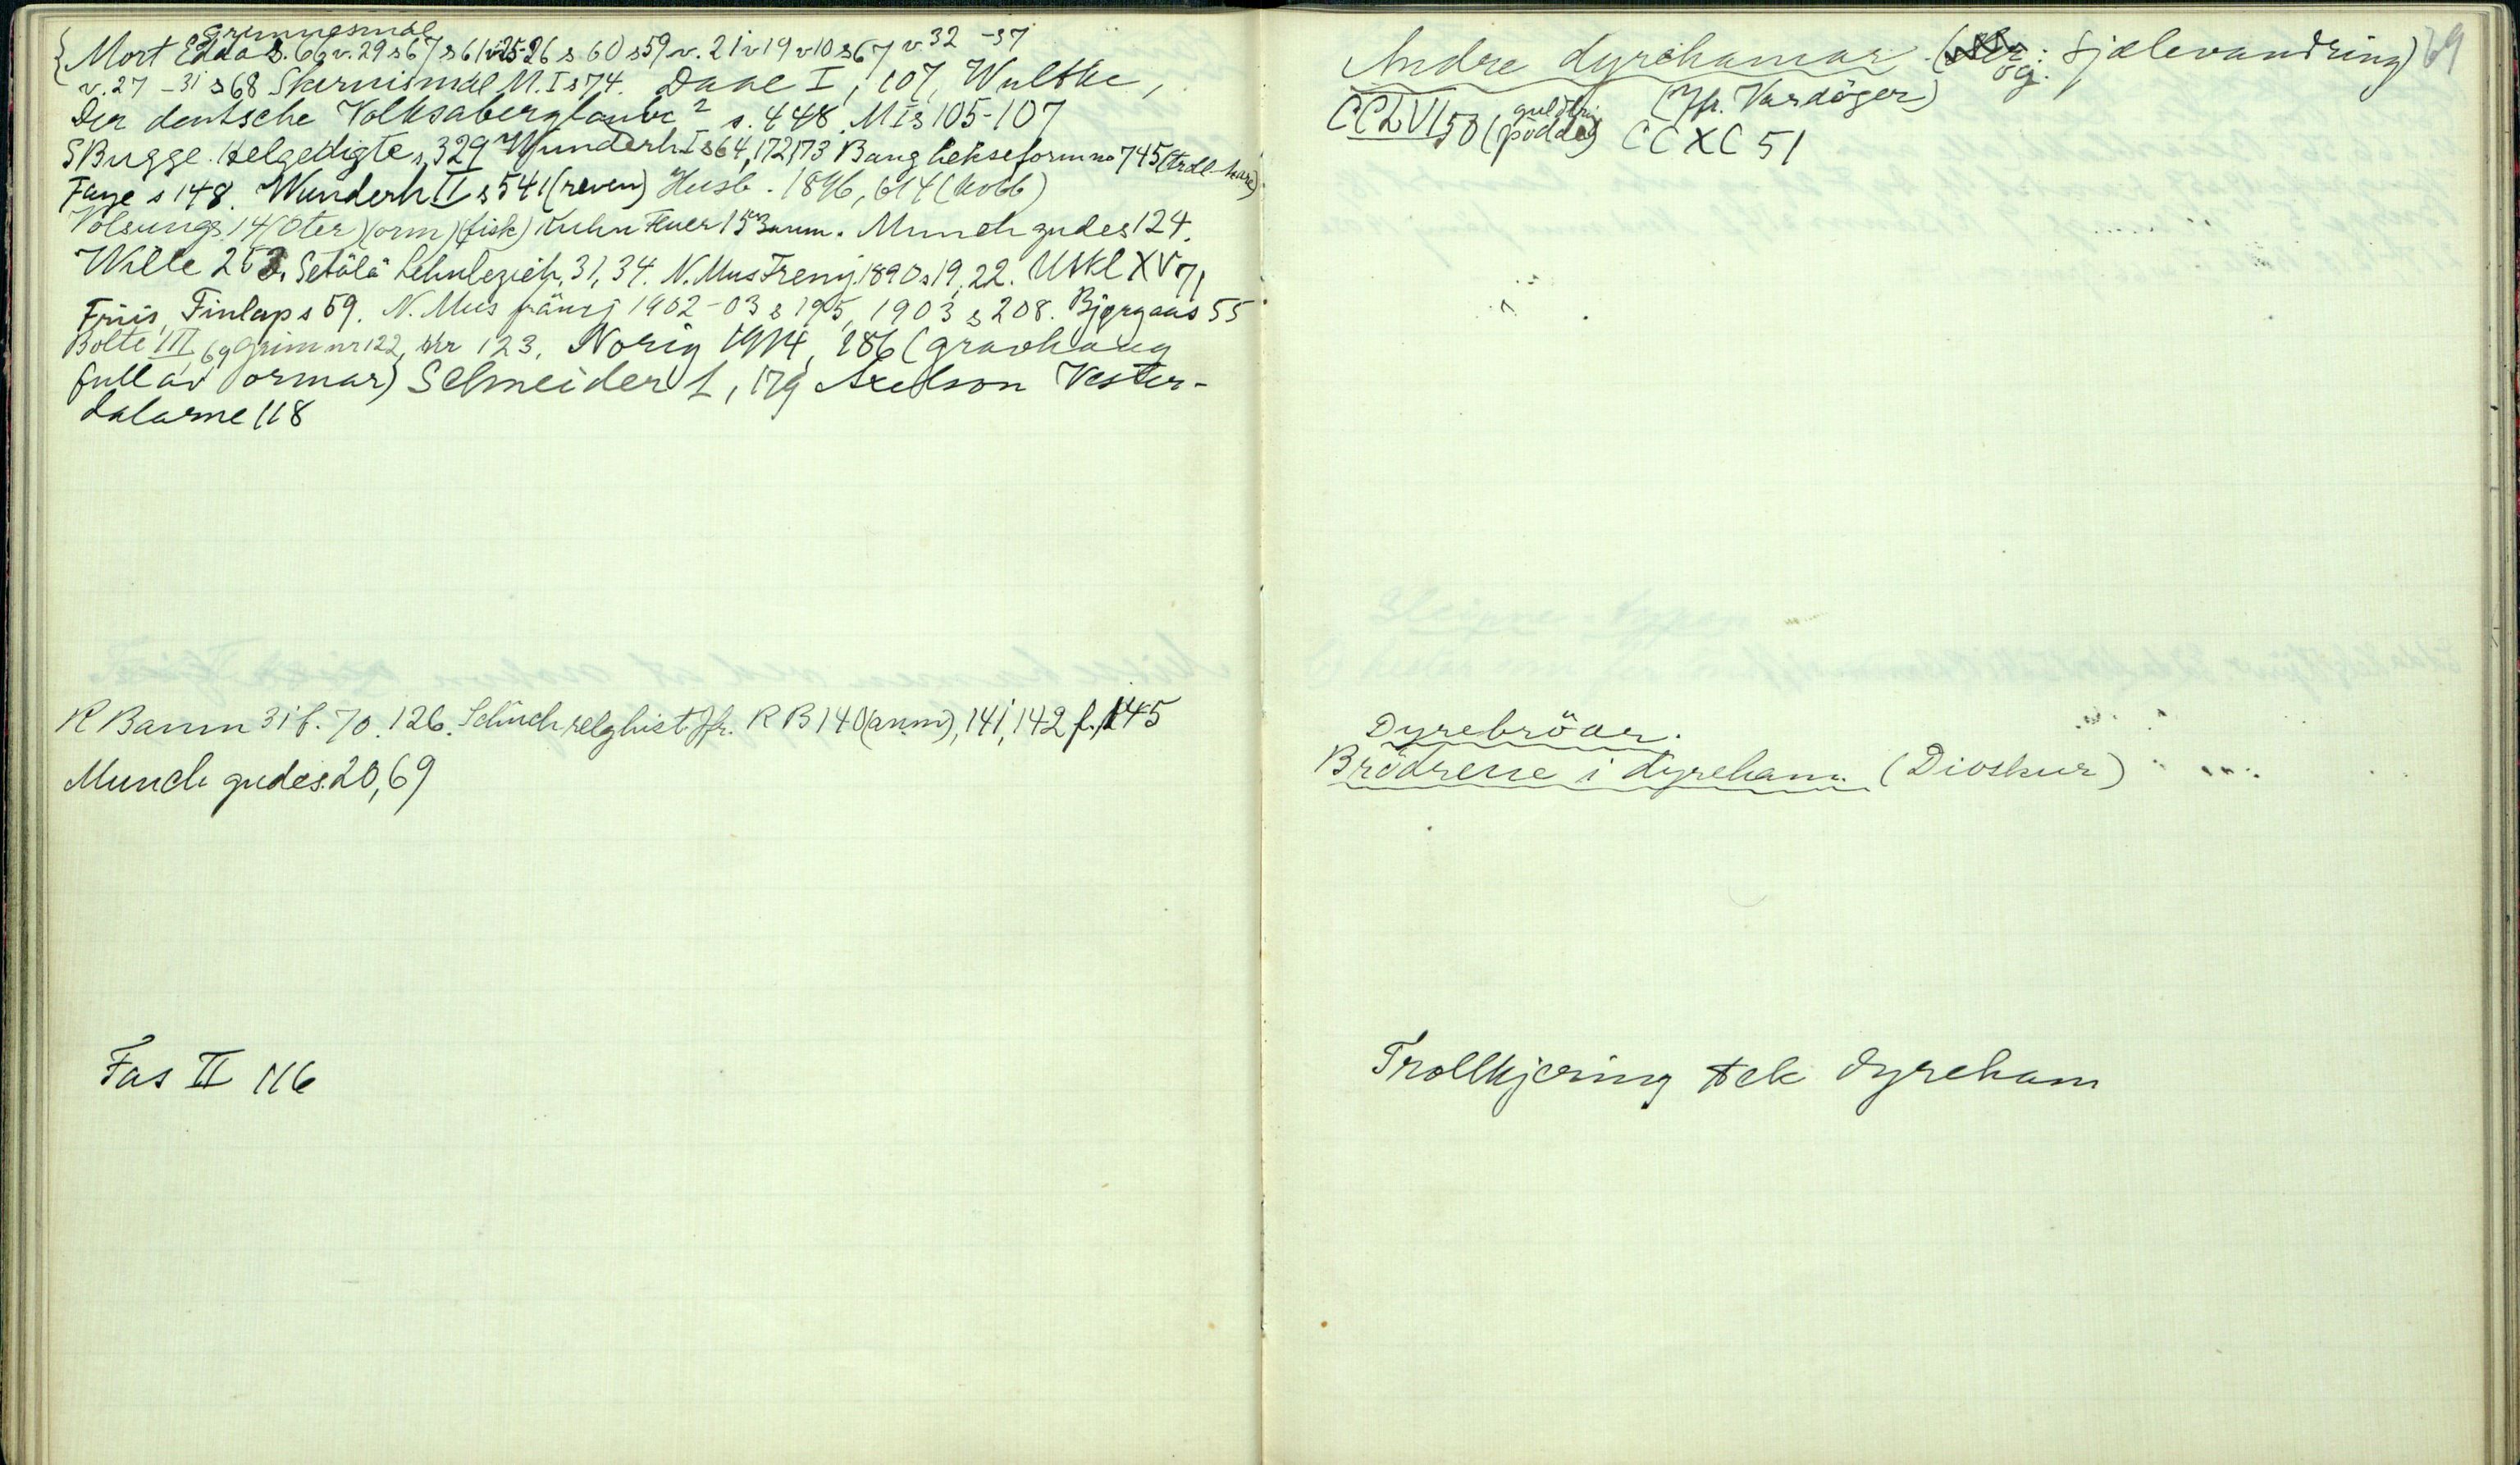 Grimnesmál
Mort Edda s. 66 v. 29 s 67 s 61 v 25-26 s 60 s 59 v. 21 v 19 v 10 s 67 v. 32 -37
v. 27 -31 s 68 Skirnismál M. I s 74. Daae I, 107, Wuttke,
Der deutsche Volksaberglaube 2 s. 448. M I s 105-107
S Bugge. Helgedigte s. 329 Wunderh I s 64, 172, 173 Bang hekseform no 745 (troll-hare)
Faye s 148. Wunderh II s 541 (reven) Husb. 1896, 614 (kobb)
Volsungs. 14 (Oter) (orm) (fisk) Kuhn Feuer 153 anm. Munch gudes 124.
Wille 253. Setälä Lehnbezieh. 31, 34. N. Mus Fremj. 1890 s 19, 22. UskL XV 71
Friis, Finlap s 59. N. Mus främj 1902-03 s 195, 1903 s 208. Bjørgaas 55
Bolte III, 69 Grimm nr 122, nr 123. Norig 1914, 286 (gravhaug
full av ormar) Schneider 1, 179 Axelson Vester-
dalarne 118
R Baum 31 f. 70. 126. Schück relghist. Jfr. R B 140 (anm), 141, 142 f. 145
Munch gudes. 20, 69
Fas II 116
Andre dyrehamar. (og: Sjælevandring) 69
(Jfr. Vardöger)
CCLVI 50 (podde) CCXC 51
Dyrebröar.
Brödrene i dyreham. (Dioskur)
Trollkjering tek dyreham